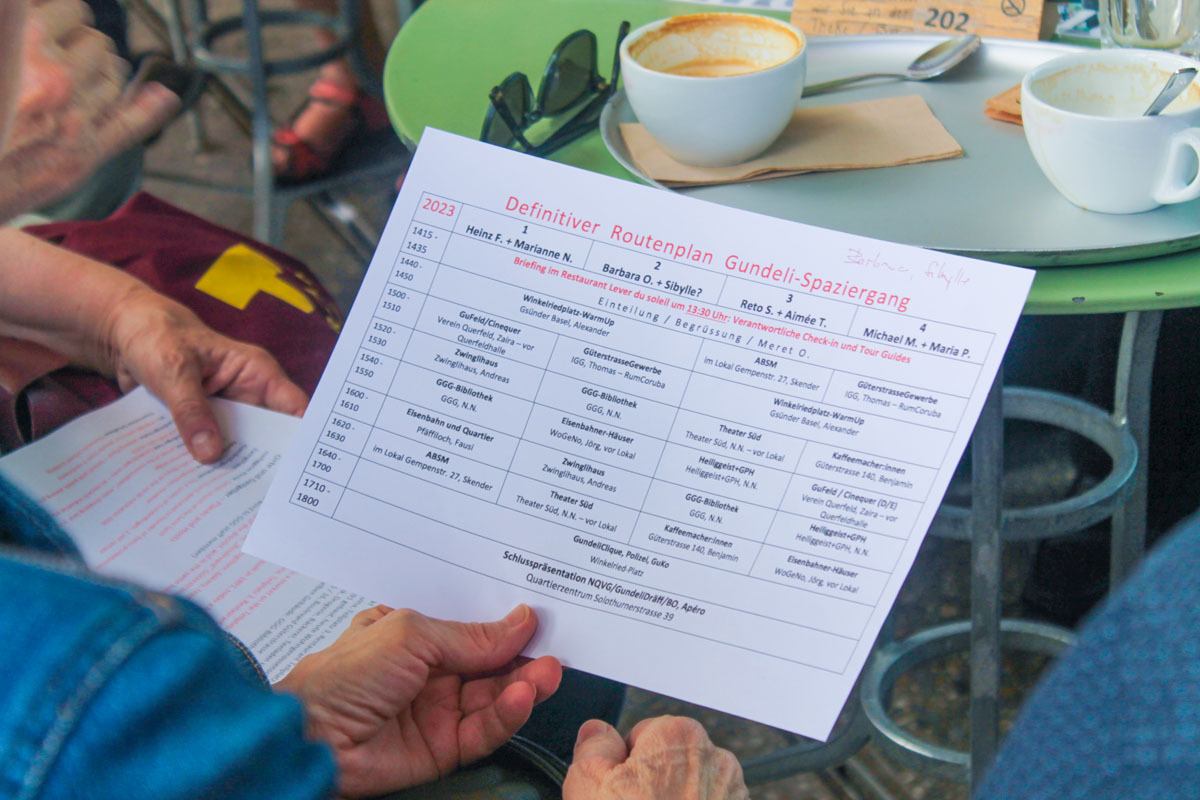 202
Definitiver Routenplan Gundeli-Spaziergang
Barbara, Sibylle
2023
1
Heinz F. + Marianne N.
2
Barbara O. + Sibylle?
3
Reto S. + Aimée T.
4
Michael M. + Maria P.
Briefing im Restaurant Lever du soleil um 13:30 Uhr: Verantwortliche Check-in und Tour Guides
1415 -
1435
Einteilung / Begrüssung / Meret O.
1440 -
1450
Winkelriedplatz-WarmUp
Gsünder Basel, Alexander
ABSM
im Lokal Gempenstr. 27, Skender
GüterstrasseGewerbe
IGG, Thomas – RumCoruba
1500 -
1510
GuFeld/Cinequer
Verein Querfeld, Zaira – vor
Querfeldhalle
GüterstrasseGewerbe
IGG, Thomas – RumCoruba
Winkelriedplatz-WarmUp
Gsünder Basel, Alexander
1520 -
1530
Zwinglihaus
Zwinglihaus, Andreas
GGG-Bibliothek
GGG, N.N.
Theater Süd
Theater Süd, N.N. – vor Lokal
Kaffeemacher:innen
Güterstrasse 140, Benjamin
1540 -
1550
GGG-Bibliothek
GGG, N.N.
Eisenbahner-Häuser
WoGeNo, Jörg, vor Lokal
Heiliggeist+GPH
Heiliggeist+GPH, N.N.
GuFeld / Cinequer (D/E)
Verein Querfeld, Zaira – vor
Querfeldhalle
1600 -
1610
Eisenbahn und Quartier
Pfäffiloch, Fausi
Zwinglihaus
Zwinglihaus, Andreas
GGG-Bibliothek
GGG, N.N.
Heiliggeist+GPH
Heiliggeist+GPH, N.N.
1620 -
1630
ABSM
im Lokal Gempenstr. 27, Skender
Theater Süd
Theater Süd, N.N. – vor Lokal
Kaffeemacher:innen
Güterstrasse 140, Benjamin
Eisenbahner-Häuser
WoGeNo, Jörg, vor Lokal
1640 -
1700
GundeliClique, Polizei, GuKo
Winkelried-Platz
1710 -
1800
Schlusspräsentation NQVG/GundeliDräff/BO, Apéro
Quartierzentrum Solothurnerstrasse 39